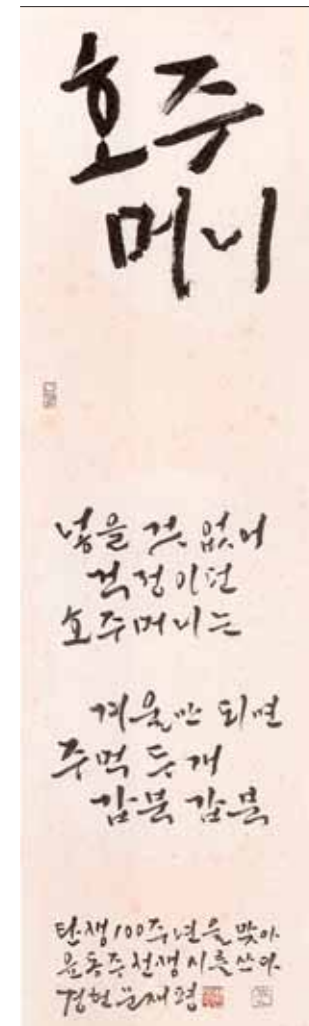 호주
머니
넣을 것 없어
걱정이던
호주머니는
겨울만 되면
주먹 두 개
갑북 갑북
탄생100주년을 맞아
윤동주 시를 쓰다.